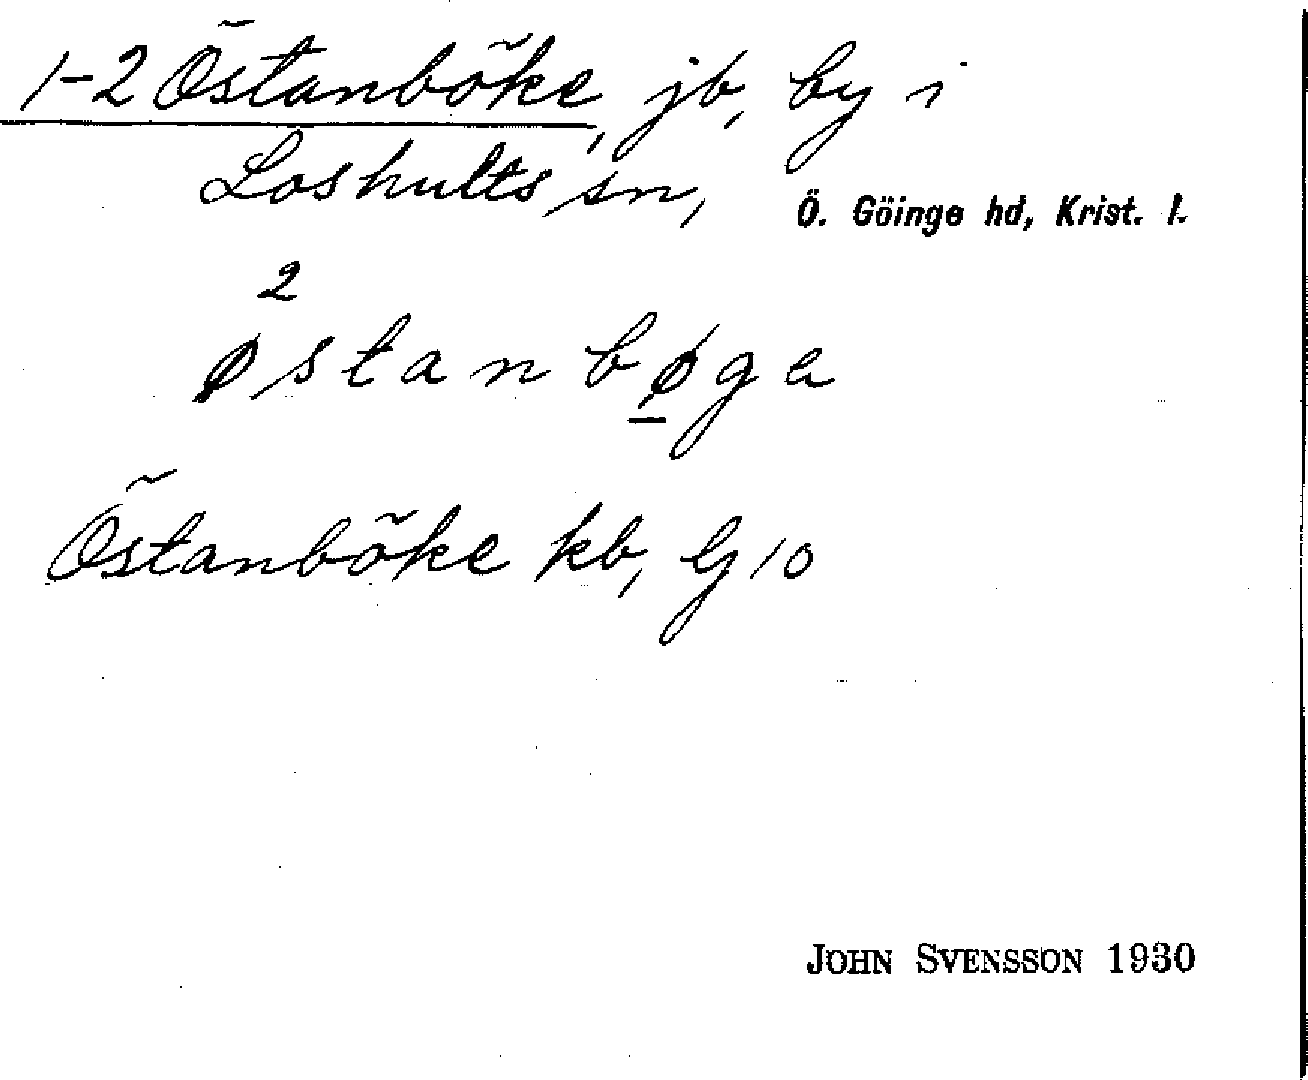 1-2 Östanböke, jb, by i
Loshults sn, Ö. Göinge hd, Krist. l.
2
østanbø̲ga
Östanböke kb, G 10
JOHN SVENSSON 1930